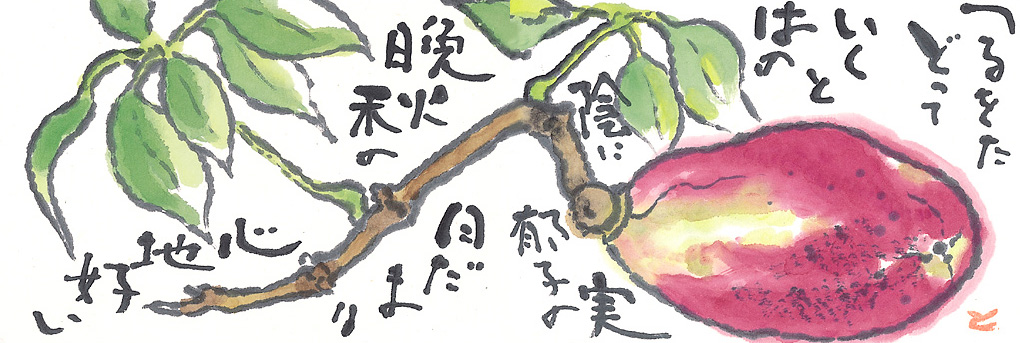 つるをた
どって
いくと
はの
陰に
郁子の
実
晩秋の
日だまり
心地好い
と